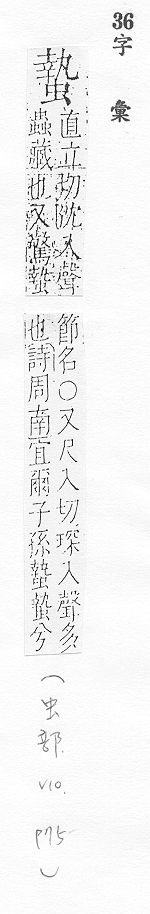 36字彙
蟄
直立切沈入聲
蟲藏也又驚蟄
節名○又尺入切琛入聲多
也詩周南宜爾子孫蟄蟄兮
(虫部. V10. P75)